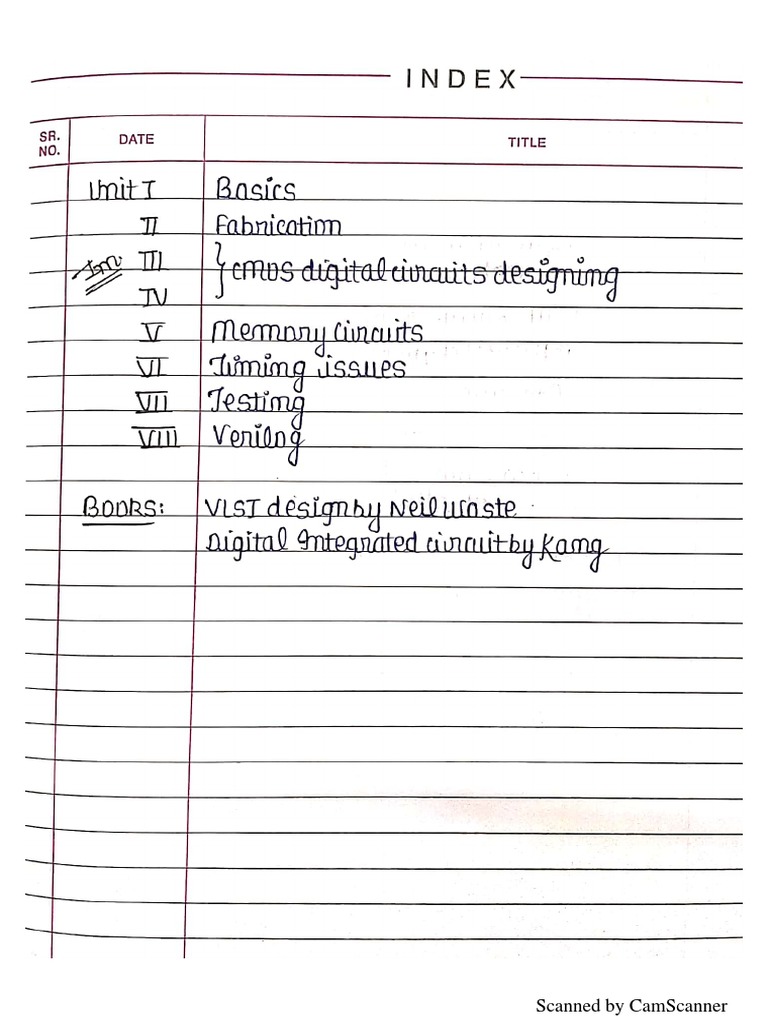 INDEX
SR. NO. DATE TITLE
Unit I Basics
II Fabrication
Im III } CMOS digital circuits designing
IV
V Memory circuits
VI Timing issues
VII Testing
VIII Verilog
BOOKS: VLSI design by Neil Waste
Digital Integrated circuit by Kang
Scanned by CamScanner